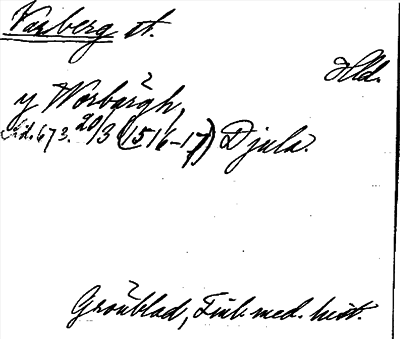 Varberg st.
Hld.
y Worbårgh,
sid. 673. 20/3 (1516-17) Djula.
Grönblad, Finl. med. hist.